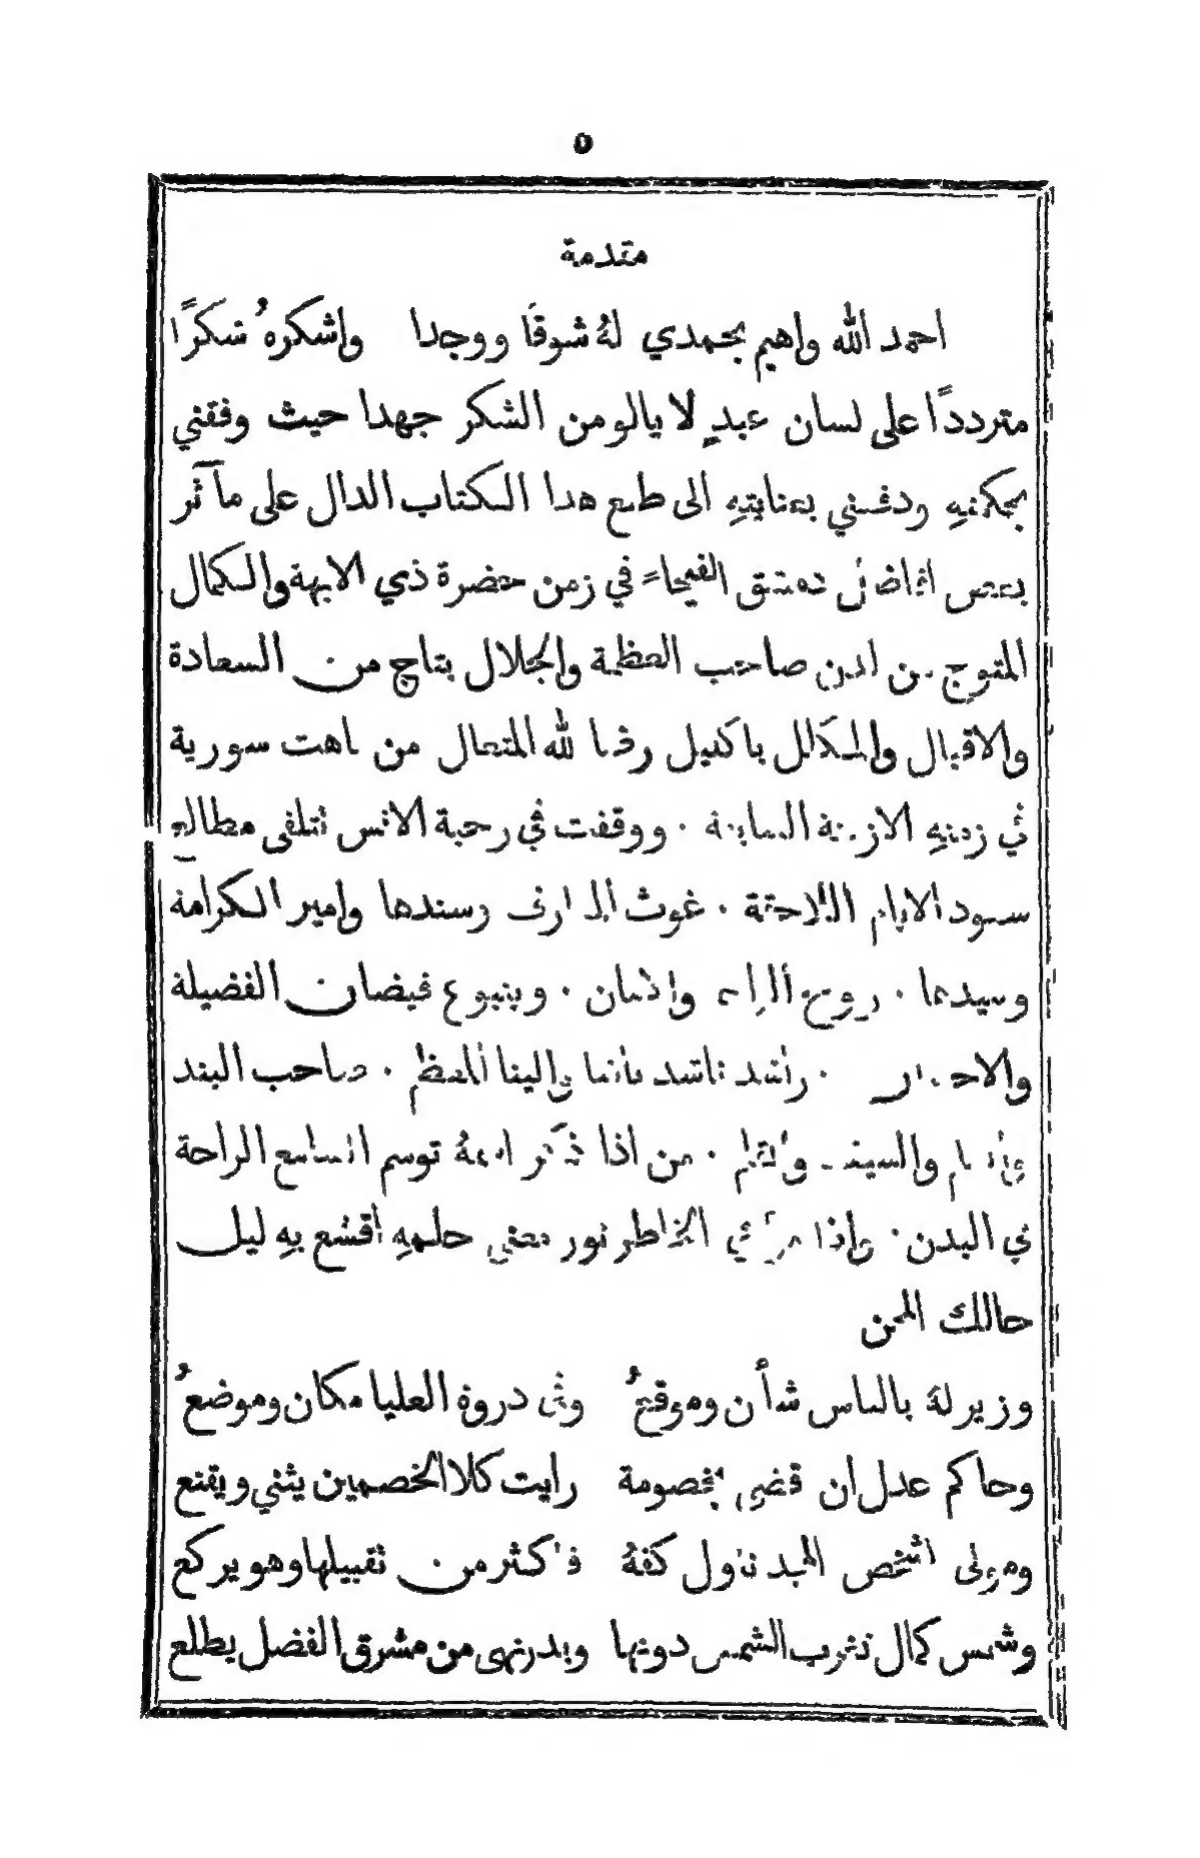 ٥
مقدمة
احمد الله واهيم بحمدي لهُ شوقًا ووجدا واشكرهُ شكرًا
مترددًا على لسان عبدٍ لا يالو من الشكر جهدا حيث وفقني
بحكمتهِ ودفعني بعنايتهِ الى طبع هذا الكتاب الدال على مآثر
بعض افاضل دمشق الفيحاء في زمن حضرة ذي الابهة والكمال
المتوج من لدن صاحب العظمة والجلال بتاج من السعادة
والاقبال والمكلل باكليل رضا الله المتعال من باهت سورية
في زمنهِ الازمنة السابقة ٠ ووقفت في رحبة الانس تتلقى مطالع
سعود الايام اللاحقة ٠ غوث المعارف وسندها وامير الكرامة
وسيدها ٠ روح ٠ وينبوع فيضان الفضيلة
٠ راشد ناشد باشا والينا المعظم ٠ صاحب البند
والسيف والقلم ٠ من اذا ذكر اسمهُ توسم السامع الراحة
في البدن ٠ واذا الخاطر نور معنى حلمهِ أقشع بهِ ليل
حالك المحن
وزير لهُ بالناس شأن وموقعُ وفي ذروة العليا مكان وموضعُ
وحاكم عدل ان قضى بخصومة رايت كلا الخصمين يثني ويقنع
ومولى لشخص المجد تناول كفهُ فاكثر من تقبيلها وهو يركع
وشمس كمال تغرب الشمس دونها وبدر نهى من مشرق الفضل يطلع